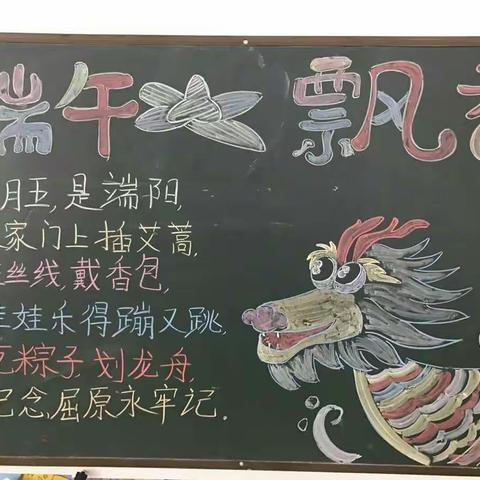 端午 飘香
月五,是端阳,
家门上插艾蒿,
丝线,戴香包,
娃娃乐得蹦又跳,
吃粽子划龙舟,
纪念屈原永牢记.